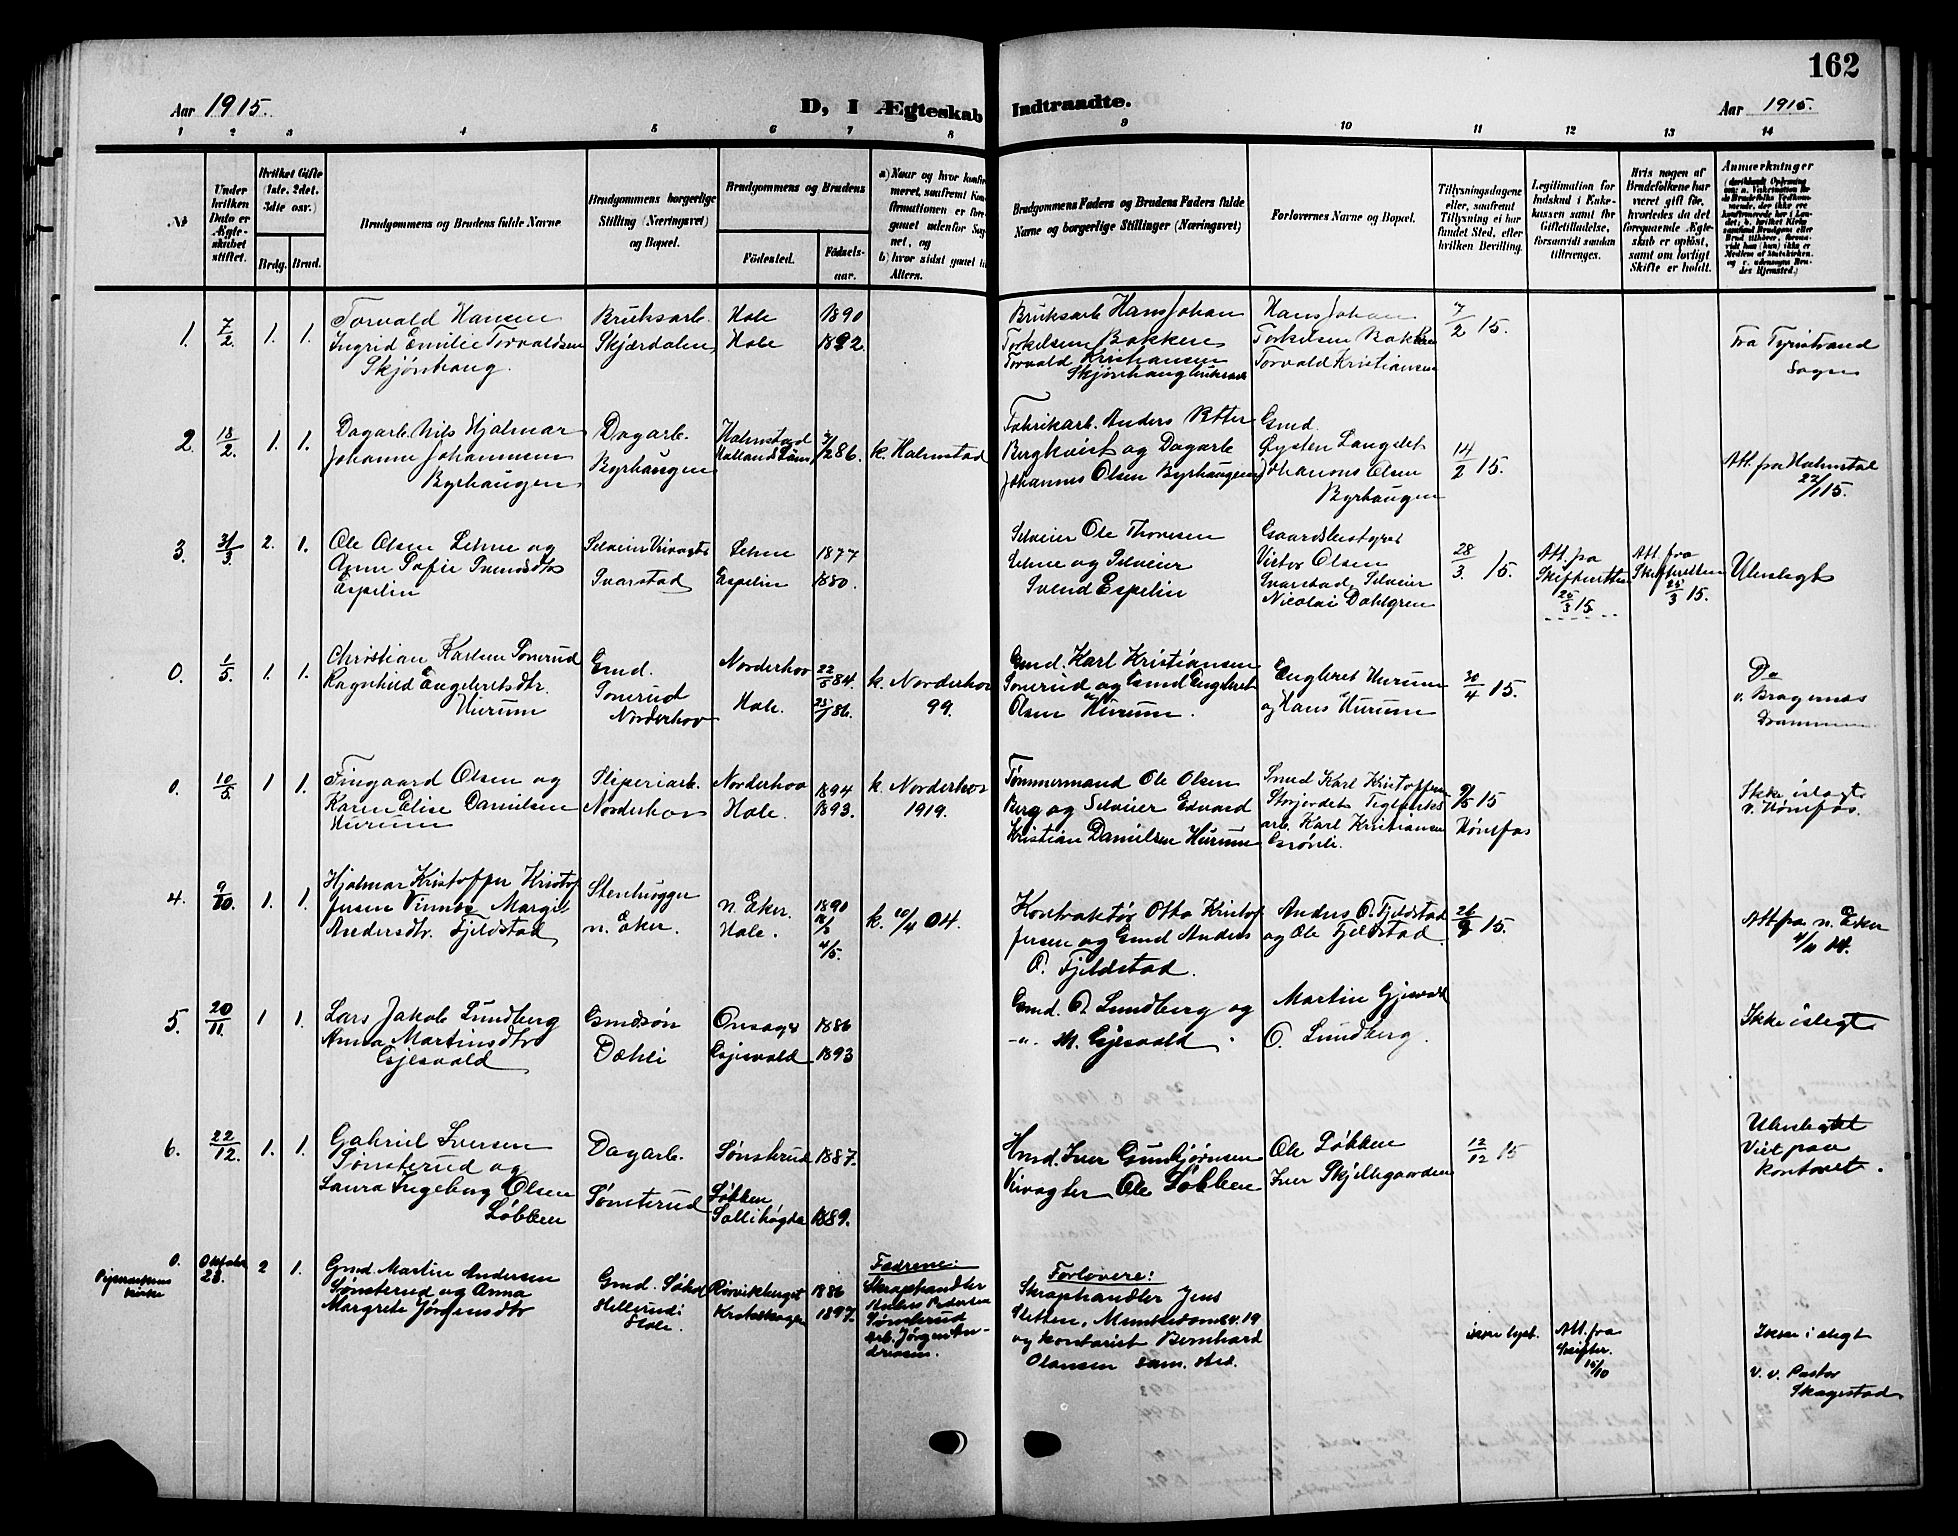 162
Aar 1915.
D, I Ægteskab Indtraadte.
Aar 1915.
1 2 3 4 5 6 7 8 9 10 11 12 13 14
Nr.
Under hvilken Dato er Ægteskabet stiftet.
Hvilket Gifte (1ste, 2det, 3die osv.)
Brdg. Brud.
Brudgommens og Brudens fulde Navne
Brudgommens borgerlige Stilling (Næringsvei) og Bopæl.
Brudgommens og Brudens
Födested.
Födselsaar.
a) Naar og hvor konfirmeret, saafremt Konfirmationen er foregaaet udenfor Sognet, og
b) hvor sidst gaaet til Alters.
Brudgommens Faders og Brudens Faders fulde Navne og borgerlige Stillinger (Næringsvei)
Forlovernes Navne og Bopæl.
Tillysningsdagene eller, saafremt Tillysning ei har fundet Sted, efter hvilken Bevilling.
Legitimation for Indskud i Enkekassen samt for Giftetilladelse, forsaavidt saadan tiltrænges.
Hvis nogen af Brudefolkene har været gift för, hvorledes da det foregaaende Ægteskab er oplöst, samt om lovligt Skifte er holdt.
Anmærkninger
1. 7/2 1. 1.
Torvald Hansen
Ingrid Emilie Torvaldsen
Skjønhaug.
Bruksarb.
Skjærdalen
Hole 1890
Hole 1892.
Bruksarb Hans Johan
Torkelsen Bakken
Torvald Kristiansen
Skjønhaug bruksarb
Hans Johan
Torkelsen Bakken
Torvald Kristiansen
7/2 15.
Fra Tyristrand
Sogn
2. 18/2 1. 1.
Dagarb. Nils Hjalmar
Johanne Johannesen
Byrhaugen
Dagarb.
Byrhaugen
Halmstad
Hallands Län
86.
k. Halmstad
Fabrikarb. Anders Petter
Bergkvist og Dagarb
Johannes Olsen Byrhaugen
Gmd.
Øysten Langslet
Johannes Olsen
Byrhaugen
14/2 15.
Att. fra Halmstad
22/1 15.
3. 31/3 2. 1.
Ole Olsen Lehne og
Anne Sofie Svendsdtr
Espelin
Selveier
Svarstad
Lehne 1877
Espelin 1880.
Selveier Ole Thoresen
Lehne og Selveier
Svend Espelin
Gaardsbestyrer
Victor Olsen
Svarstad, Selveier
Nicolai Dahlgren
28/3 15.
Att. fra
Skifteretten
25/3 15.
Att. fra
Skifteretten
25/3 15.
Ubeslegt
0. 1/5. 1. 1.
Christian Karlsen Sonerud
Ragnhild Engebretsdtr.
Hurum
Gmd.
Sonerud
Norderhov
Norderhov 22/5 84.
Hole. 86.
k. Norderhov
99.
Gmd. Karl Kristiansen
Sonerud og Gmd Engebret
Olsen Hurum.
Engbret Hurum
og Hans Hurum
30/4 15.
Do
v. Bragernæs
Drammen
0. 10/5 1 1.
Fingaard Olsen og
Karen Elise Danielsen
Hurum
Sliperiarb.
Norderhov
Norderhov 1894
Hole. 1893.
k. Norderhov
1919.
Tømmermand Ole Olsen
Berg og Selveier Edvard
Kristian Danielsen Hurum
Smed Karl Kristoffersen
Storjordet Teglverks
arb. Karl Kristiansen
9/5 15
Hönefos
Ikke islegt
v. Hönefos.
4. 9/10. 1. 1.
Hjalmar Kristoffer Kristof
fersen Margit
Andersdtr. Fjeldstad
Stenhugger
n. Eker.
n. Eker. 1890
Hole.
4/5.
k. 10/4 04.
Kontraktör Otto Kristof
fersen og Gmd Anders
O. Fjeldstad.
Anders O. Fjeldstad
og Ole Fjeldstad
26/9 15.
Att fra n. Eker
5. 20/11. 1 1.
Lars Jakob Lundberg
Anna Martinsdtr
Gjesvold
Gmdsön
Dæhli
Onsager 1886
Gjesvold 1893
Gmd. O Lundberg og
-"- M. Gjesvold.
Martin Gjesvold
O. Lundberg.
Ikke islegt
6. 22/12. 1. 1.
Gabriel Iversen
Sønsterud og
Laura Ingeborg Olsen
Løkken
Dagarb.
Sønsterud
Sønsterud 1887.
Løkken
Sollihøgda 1889.
Hmd. Iver Gunbjørnsen
Ole Løkken
Ole Løkken
Iver Skjellegaarden
12/12 15
Ubeslegtet
Viet paa
kontoret.
0. Oktober 28. 2 1.
kirke
Gmd. Martin Andersen
Sønsterud og Anna
Margrete Jørgensdtr
Gmd.
Hole.
1886
1897.
Fædrene:
Skraphandler
Anders Pedersen
Sønsterud
Arb. Jørgen An-
driasen.
Forlovere:
Skraphandler Jens
Sletten, Munkedamsv. 19
og kontorist Bernhard
Olansen sam. sted.
ikke lyst.
Att. fra
15/10
Ikke i slegt
v. v. Pastor
Skagestad